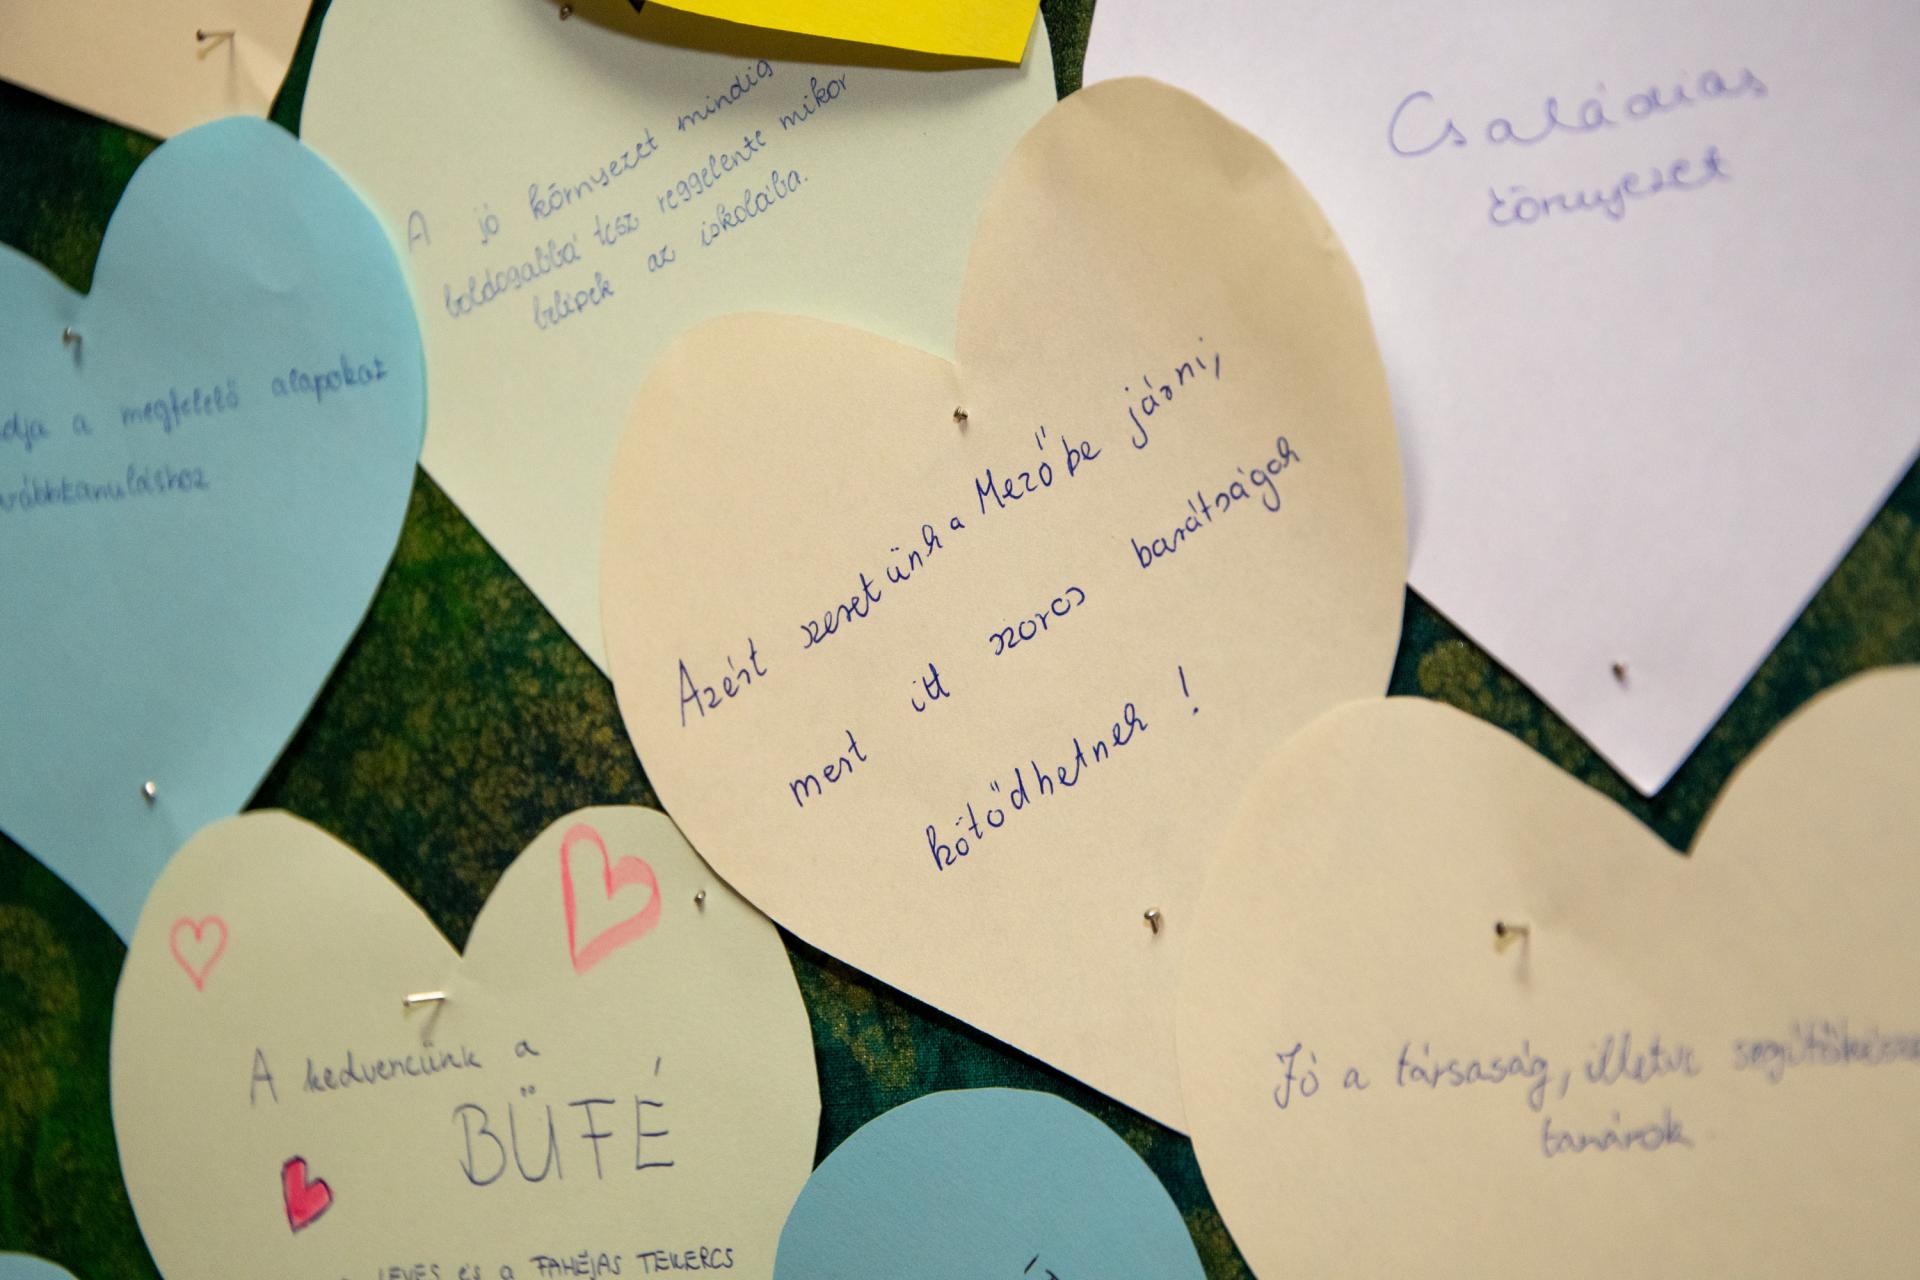 A jó környezet mindig
boldogabbá tesz reggelente mikor
belépek az iskolába.
Családias
környezet
a megfelelő alapokat
Azért szeretünk a Mezőbe járni,
mert itt szoros barátságok
kötődhetnek!
A kedvencünk a
BÜFÉ
LEVES és a FAHÉJAS TEKERCS
Jó a társaság, illetve
tanárok